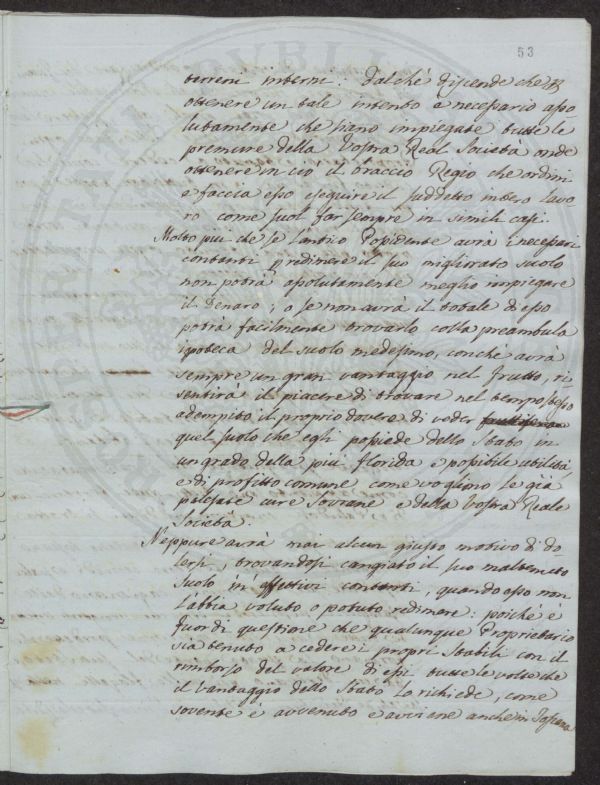 53
terreni interni: dalchè discende che p
ottenere un tale intento è necessario asso
lutamente che siano impiegate tutte le
premure della Vostra Real Società onde
ottenere in ciò il braccio Regio che ordini
e faccia esso eseguire il suddetto intero lavo
ro come suol far sempre in simili casi.
Molto più che se l'antico Possidente avrà i necessari
contanti p redimere il suo migliorato suolo
non potrà assolutamente meglio impiegare
il Denaro; o se non avrà il totale di esso
potrà facilmente trovarlo colla preambula
ipoteca del suolo medesimo, conchè avrà
sempre un gran vantaggio nel frutto, ri-
sentirà il piacere di trovare nel tempo stesso
adempito il proprio dovere di veder
quel suolo che egli possiede dello Stato in
un grado della più florida e possibile utilità
e di profitto comune come vogliono le già
palesate cure Sovrane e della Vostra Reale
Società.
Neppure avrà mai alcun giusto motivo di do-
lersi, trovandosi cangiato il suo
suolo in effettivi contanti, quando esso non
l'abbia voluto o potuto redimere: poichè è
fuor di questione che qualunque Proprietario
sia tenuto a cedere i propri Stabili con il
rimborso del valore di essi tutte le volte che
il Vantaggio dello Stato lo richiede, come
sovente è avvenuto e avviene anche in Toscana